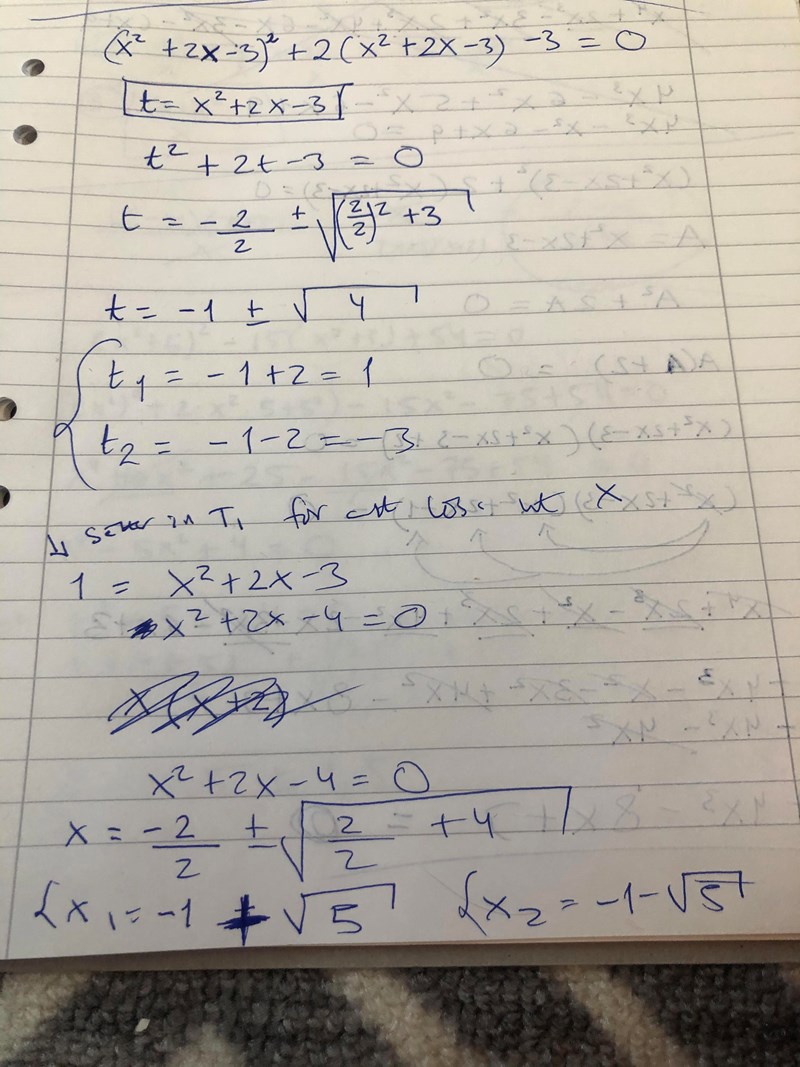 (x² + 2x - 3)² + 2(x² + 2x - 3) - 3 = 0
t = x² + 2x - 3
t² + 2t - 3 = 0
t = -2/2 ± √((2/2)² + 3)
t = -1 ± √4
{ t₁ = -1 + 2 = 1
t₂ = -1 - 2 = -3
in T₁ for att x
1 = x² + 2x - 3
x² + 2x - 4 = 0
x² + 2x - 4 = 0
x = -2/2 ± √(2/2 + 4)
{x₁ = -1 + √5 {x₂ = -1 - √5